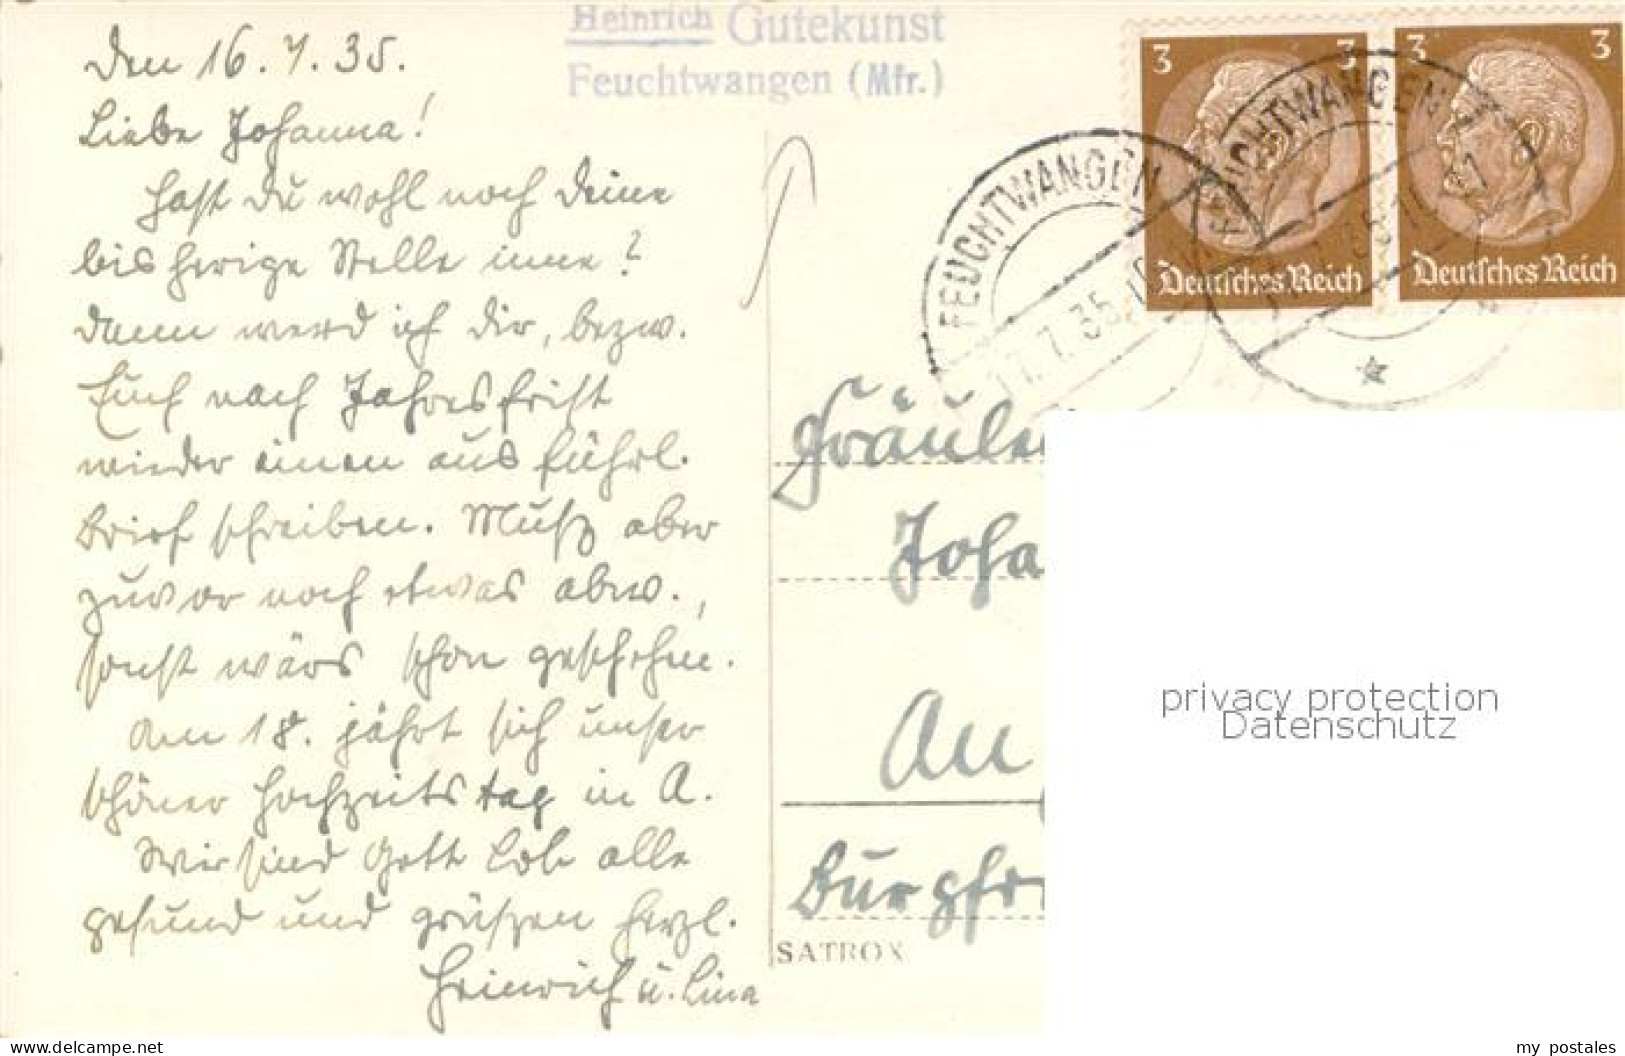 Heinrich Gutekunst
Feuchtwangen (Mfr.)
Den 16.7.35.
Liebe Johanna!
Hast Du wohl noch Deine
bisherige Stelle inne?
Dann werd ich Dir, bezw.
Euch nach Jahresfrist
wieder einen ausführl.
Brief schreiben. Muß aber
zuvor noch etwas abw.,
sonst wärs schon geschehen.
Am 18. jährt sich unser
schöner Hochzeitstag in A.
Wir sind Gott Lob alle
gesund und grüßen herzl.
Heinrich u. Lina
3 3
Deutsches Reich
3 3
Deutsches Reich
FEUCHTWANGEN
17.7.35
FEUCHTWANGEN
Fräule
Joha
An
Burgfr
SATROX
privacy protection
Datenschutz
www.delcampe.net
my_postales